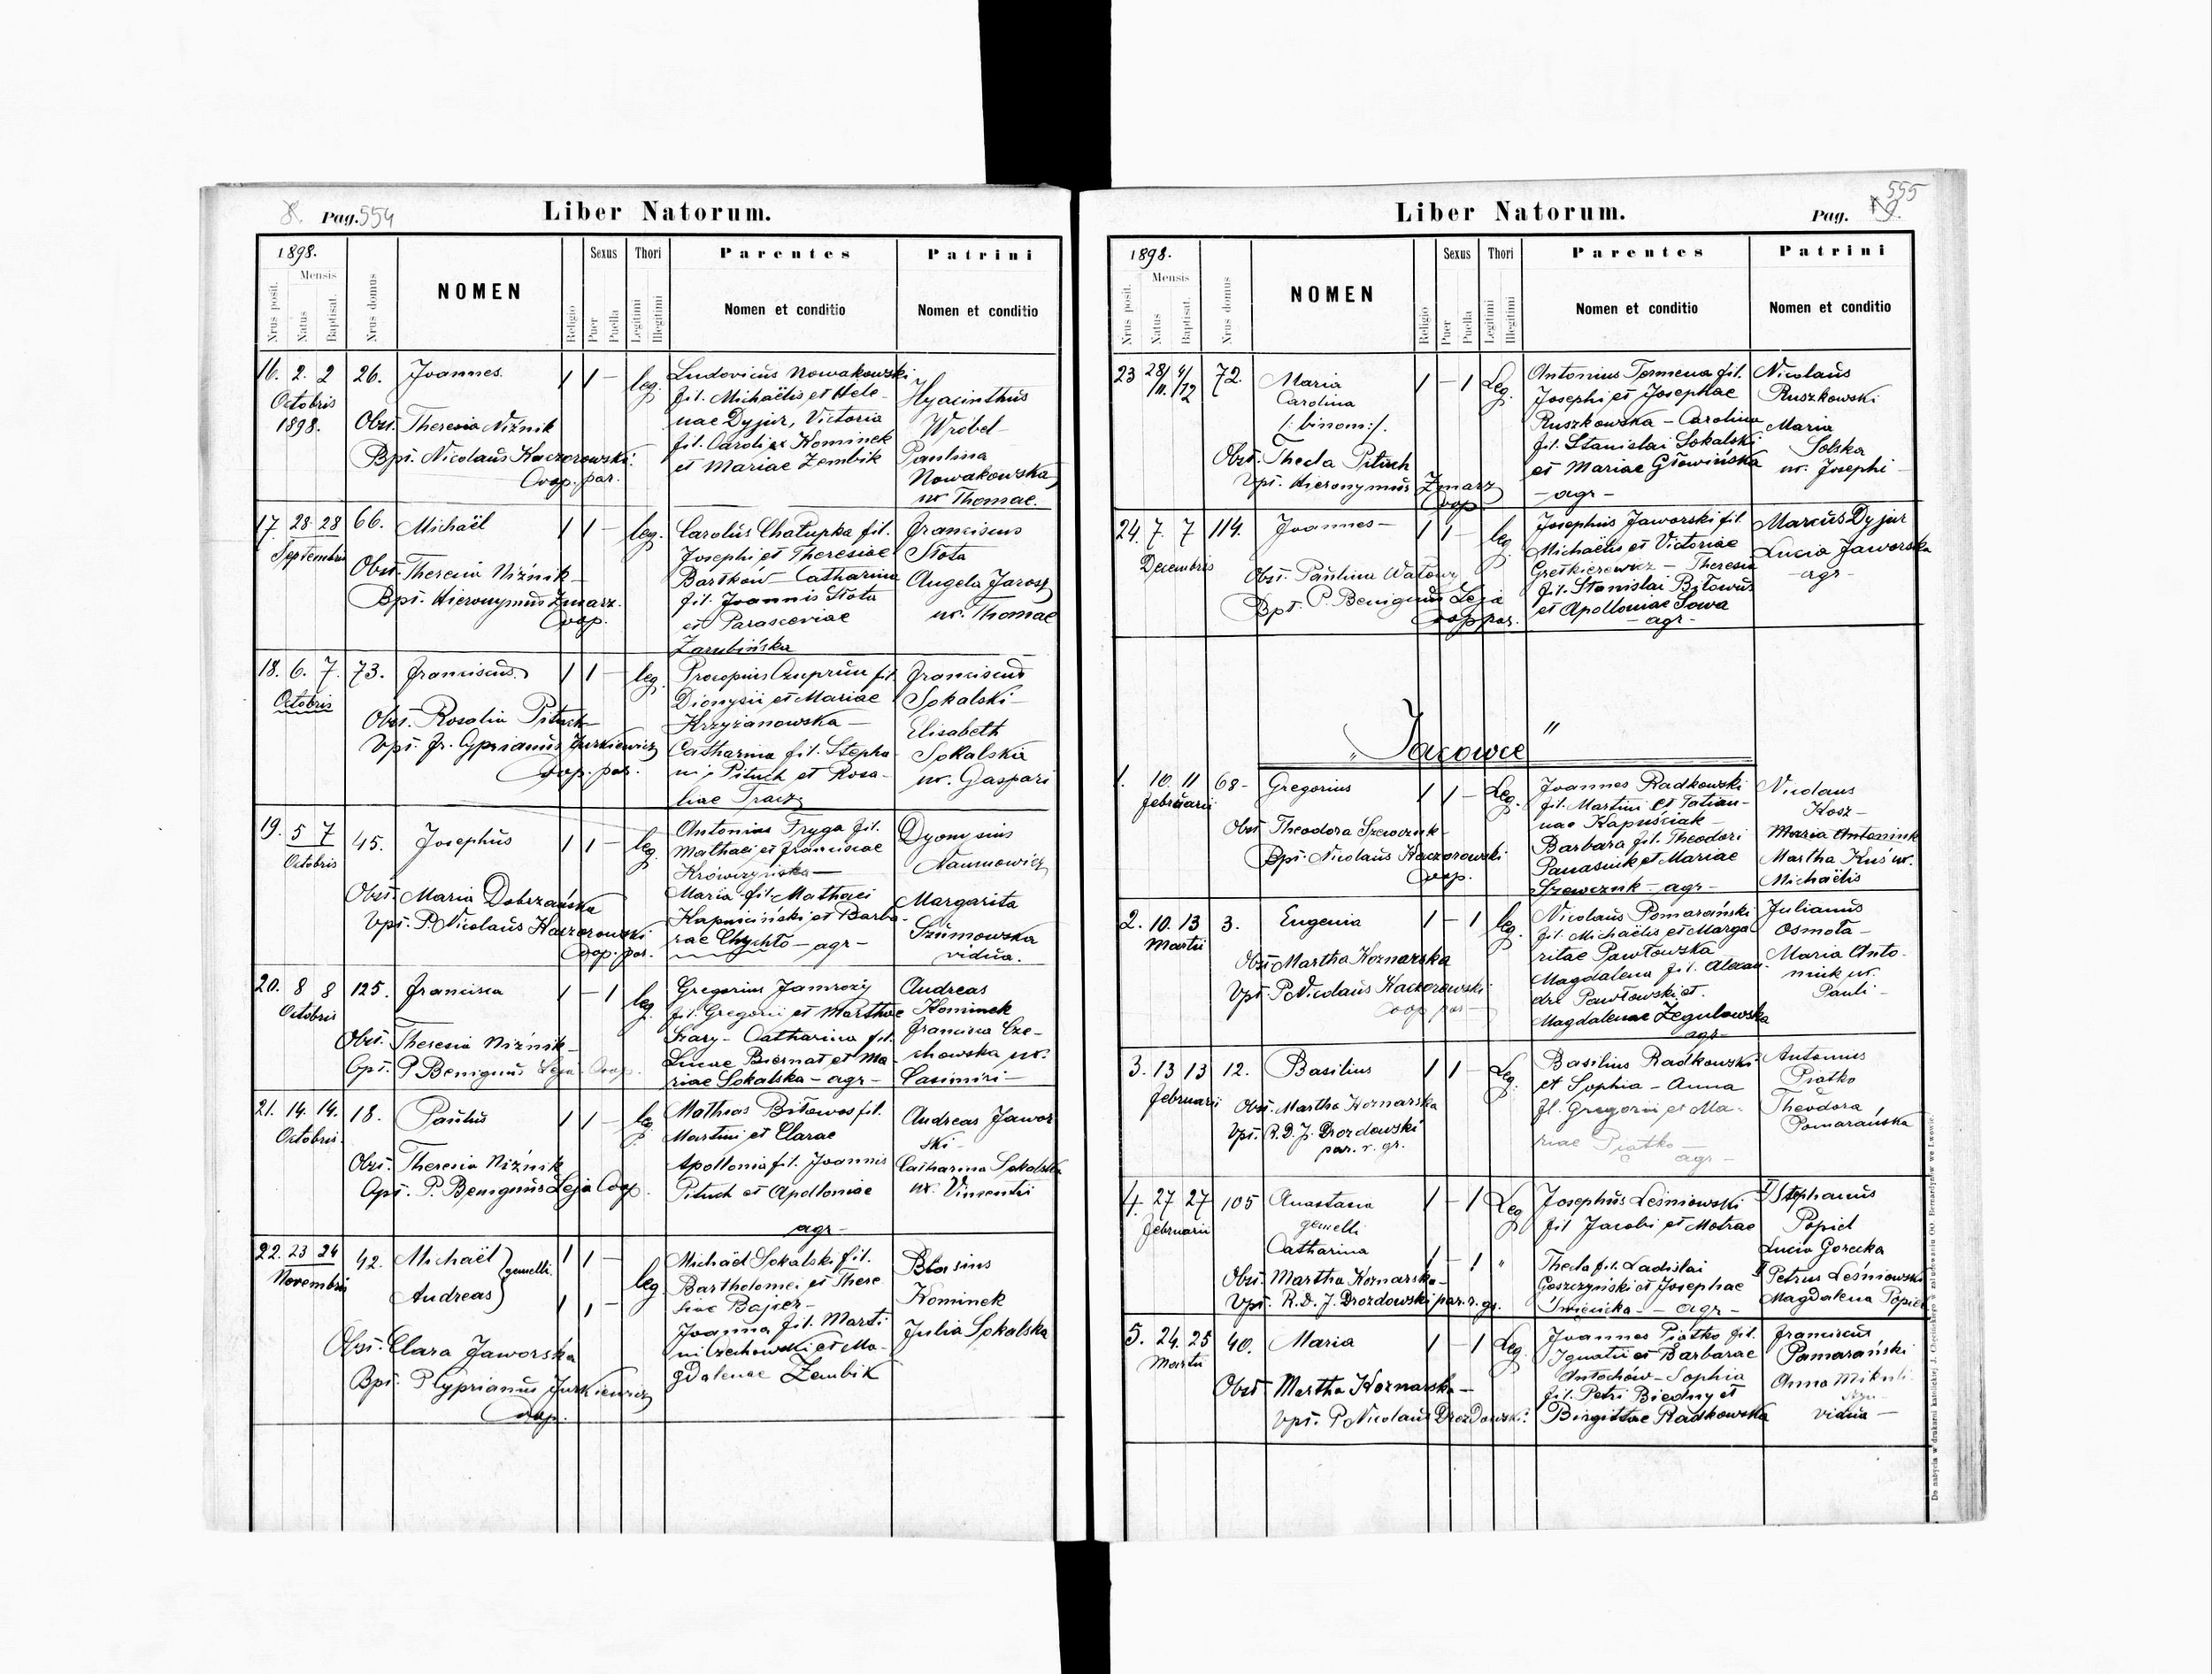 8. Pag. 554
Liber Natorum.
1898.
Nrus posit.
Mensis
Natus
Baptisat.
Nrus domus
NOMEN
Religio
Sexus
Puer
Puella
Thori
Legitimi
Illegitimi
Parentes
Nomen et conditio
Patrini
Nomen et conditio
16. 2. 2
Octobris
1898.
26.
Joannes
1 1 – leg.
Obst. Theresia Niźnik
Bpt. Nicolaus Kaczorowski
Coop. par.
Ludovicus Nowakowski
fil. Michaëlis et Hele-
nae Dyjur, Victoria
fil. Caroli Kominek
et Mariae Zembik
Hyacinthus
Wróbel
Paulina
Nowakowska
ux Thomae.
17. 28 28
Septembris
66.
Michaël
1 1 – leg.
Obst. Theresia Niźnik
Bpt. Hieronymus Zmarz.
Coop.
Carolus Chałupka fil.
Josephi et Theresiae
Bartków – Catharina
fil. Joannis Słota
et Parasceviae
Zarubińska
Franciscus
Słota
Angela Jarosz
ux. Thomae
18. 6. 7.
Octobris
73.
Franciscus
1 1 – leg.
Obst. Rosalia Pituch
Bpt. Fr. Cyprianus Jurkiewicz
Coop. par.
Procopius Czuprun fil.
Dionysii et Mariae
Krzyżanowska –
Catharina fil. Stepha-
ni Pituch et Rosa-
liae Tracz
Franciscus
Sokalski –
Elisabeth
Sokalska
ux. Gaspari
19. 5 7
Octobris
45.
Josephus
1 1 – leg.
Obst. Maria Dobrzańska
Bpt. P. Nicolaus Kaczorowski
Coop. par.
Antonius Fryga fil.
Mathaei et Franciscae
Krówczyńska –
Maria fil. Mathaei
Kapuściński et Barba-
rae Chychło – agr –
Dyonysius
Naumowicz
Margarita
Szumowska
vidua.
20. 8 8
Octobris
125.
Francisca
1 – 1 leg.
Obst. Theresia Niźnik –
Bpt. P. Benignus Leja Coop.
Gregorius Jamroży
fil. Gregorii et Marthae
Szary – Catharina fil.
Lucae Biernat et Ma-
riae Sokalska – agr –
Andreas
Kominek
Francisca Cze-
chowska ux.
Casimiri –
21. 14. 14.
Octobris
18.
Paulus
1 1 – leg.
Obst. Theresia Niźnik
Bpt. P. Benignus Leja Coop.
Mathias Biłowos fil.
Martini et Clarae
Apollonia fil. Joannis
Pituch et Apolloniae
agr –
Andreas Jawor
ski –
Catharina Sokalska
ux. Vincentii
22. 23 24
Novembris
42.
Michaël
gemelli
Andreas
1 1 –
leg
1 1 –
Obst. Clara Jaworska
Bpt. P. Cyprianus Jurkiewicz
Coop.
Michaël Sokalski fil.
Bartholomei et There
siae Bajser –
Joanna fil. Marti
ni Czechowski et Ma-
gdalenae Zembik
Blasius
Kominek
Julia Sokalska
555
Liber Natorum.
Pag. 9.
1898.
Nrus posit.
Mensis
Natus
Baptisat.
Nrus domus
NOMEN
Religio
Sexus
Puer
Puella
Thori
Legitimi
Illegitimi
Parentes
Nomen et conditio
Patrini
Nomen et conditio
23 28/11. 4/12
72.
Maria
Carolina
/: binom :/.
1 – 1 Leg.
Obst. Thecla Pituch
Bpt. Hieronymus Zmarz
Coop.
Antonius Termena fil.
Josephi et Josephae
Ruszkowska – Carolina
fil. Stanislai Sokalski
et Mariae Głowińska
– agr –
Nicolaus
Ruszkowski
Maria
Solska
ux. Josephi –
24. 7. 7
Decembris
114.
Joannes –
1 1 – leg
Obst. Paulina
Bpt. P. Benignus Leja
Coop par.
Josephus Jaworski fil.
Michaëlis et Victoriae
Greśkiewicz – Theresia
fil. Stanislai Biłowus
et Apolloniae Sowa
– agr –
Marcus Dyjur
Lucia Jaworska
– agr –
„ Jacowce "
1. 10. 11
Februarii
68 –
Gregorius
1 1 – Leg.
Obst Theodora Szewczuk –
Bpt. Nicolaus Kaczorowski
Coop.
Joannes Radkowski
fil. Martini et Tatian-
nae Kapuściak –
Barbara fil. Theodori
Panasiuk et Mariae
Szewczuk – agr –
Nicolaus
Kosz –
Maria Antoniuk
Martha Kuś ux.
Michaëlis
2. 10. 13
Martii
3.
Eugenia
1 – 1 leg.
Obst Martha Koznarska
Bpt. P. Nicolaus Kaczorowski
Coop par –
Nicolaus Pomarański
fil. Michaëlis et Marga
ritae Pawłowska
Magdalena fil. Alexan-
dri Pawłowski et.
Magdalenae Zegulowska
agr –
Julianus
Osmola –
Maria Anto-
niuk ux.
Pauli –
3. 13 13
Februarii
12.
Basilius
1 1 – Leg.
Obst. Martha Koznarska
Bpt. R. D. J. Drozdowski
par. r. gr.
Basilius Radkowski
et Sophia – Anna
fl. Gregorii et Ma-
riae Piątko –
agr –
Antonius
Piątko
Theodora
Pomarańska
4. 27 27
Februarii
105
Anastasia
gemelli
Catharina
1 – 1 Leg
1 – 1 "
Obst. Martha Koznarska –
Bpt. R. D. J. Drozdowski par. r. gr.
Josephus Leśniowski
fil Jacobi et Motrae
Thecla fil. Ladislai
Goszczyński et Josephae
Świeńcicka – – agr –
I Stephanus
Popiel
Lucia Gorecka
II Petrus Leśniowski
Magdalena Popiel
5. 24. 25
Martii
40.
Maria
1 – 1 Leg
Obst Martha Koznarska –
Bpt. P. Nicolaus Drozdowski
Joannes Piątko fil.
Ignatii et Barbarae
Antochów – Sophia
fil. Petri Biedny et
Birgittae Radkowska
Franciscus
Pamarański
Anna Mikuli
vidua –
Do nabycia w drukarni katolickiej J. Chęcińskiego w zabudowaniu OO. Bernardynów we Lwowie.